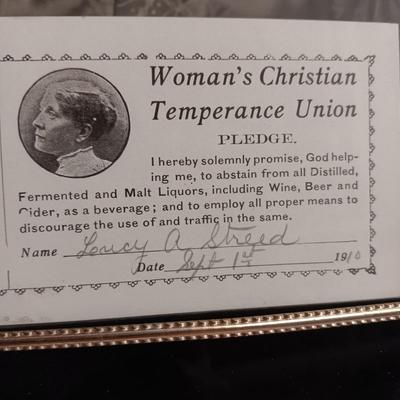 Woman's Christian
Temperance Union
PLEDGE.
I hereby solemnly promise, God help-
ing me, to abstain from all Distilled,
Fermented and Malt Liquors, including Wine, Beer and
Cider, as a beverage; and to employ all proper means to
discourage the use of and traffic in the same.
Name Loucy A. Streed
Date Sept 1st 1910